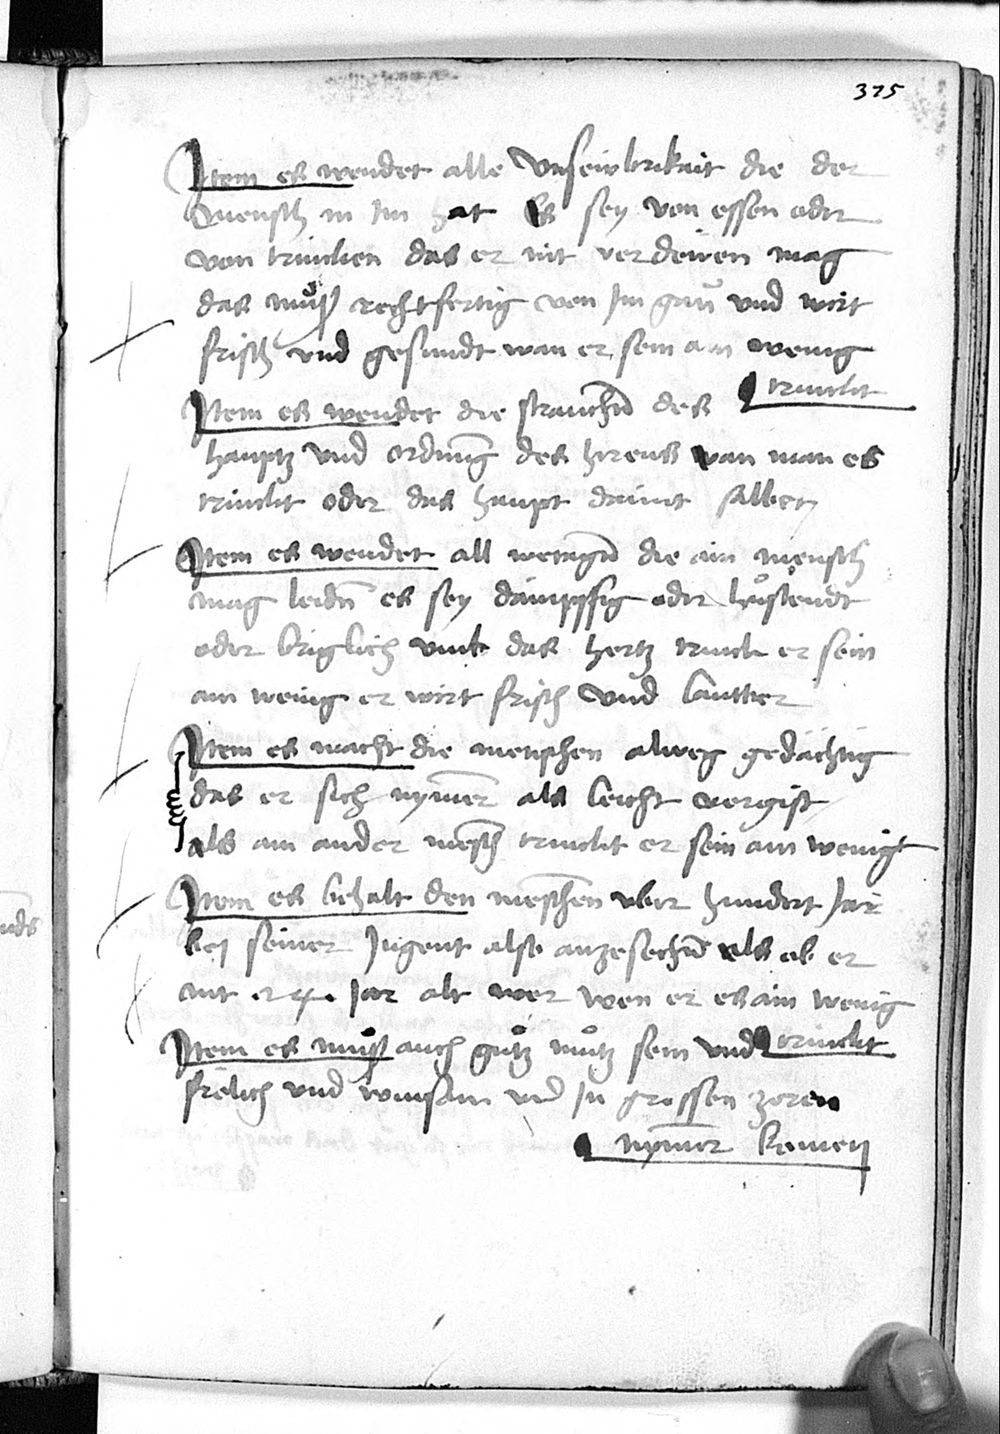 375
Item es wendet alle vnsewbrikait die der
mensch in im hat Es sey von essen oder
von trincken das er nit verdewen mag
das můß rechtfertig von im gan vnd wirt
frisch vnd gesundt wan er sein ain wenig
trinckt
Item es wendet die strauchñ des
hauptz vnd ordnung des hirens wan man es
trinckt oder das haupt damit salbet
Item es wendet all wetagñ die ain mensch
mag leidñ es sey dampffig oder hůstendt
oder umb das hertz trinck er sein
ain wenig er wirt frisch vnd lautter
Item es macht die menschen alweg gedächtig
das er sich nymer als leicht vergist
als ain ander mesch trinckt er sein ain wenigt
Item es behalt den meschen vber hundert Jar
bej seiner Jugent also anzesechñ als ob er
nit Jar alt wer wen er es ain wenig
trinckt
Item es můß auch gůtz můtz sein vnd
frelich vnd wunsam vnd In grossen zoren
nymer komen